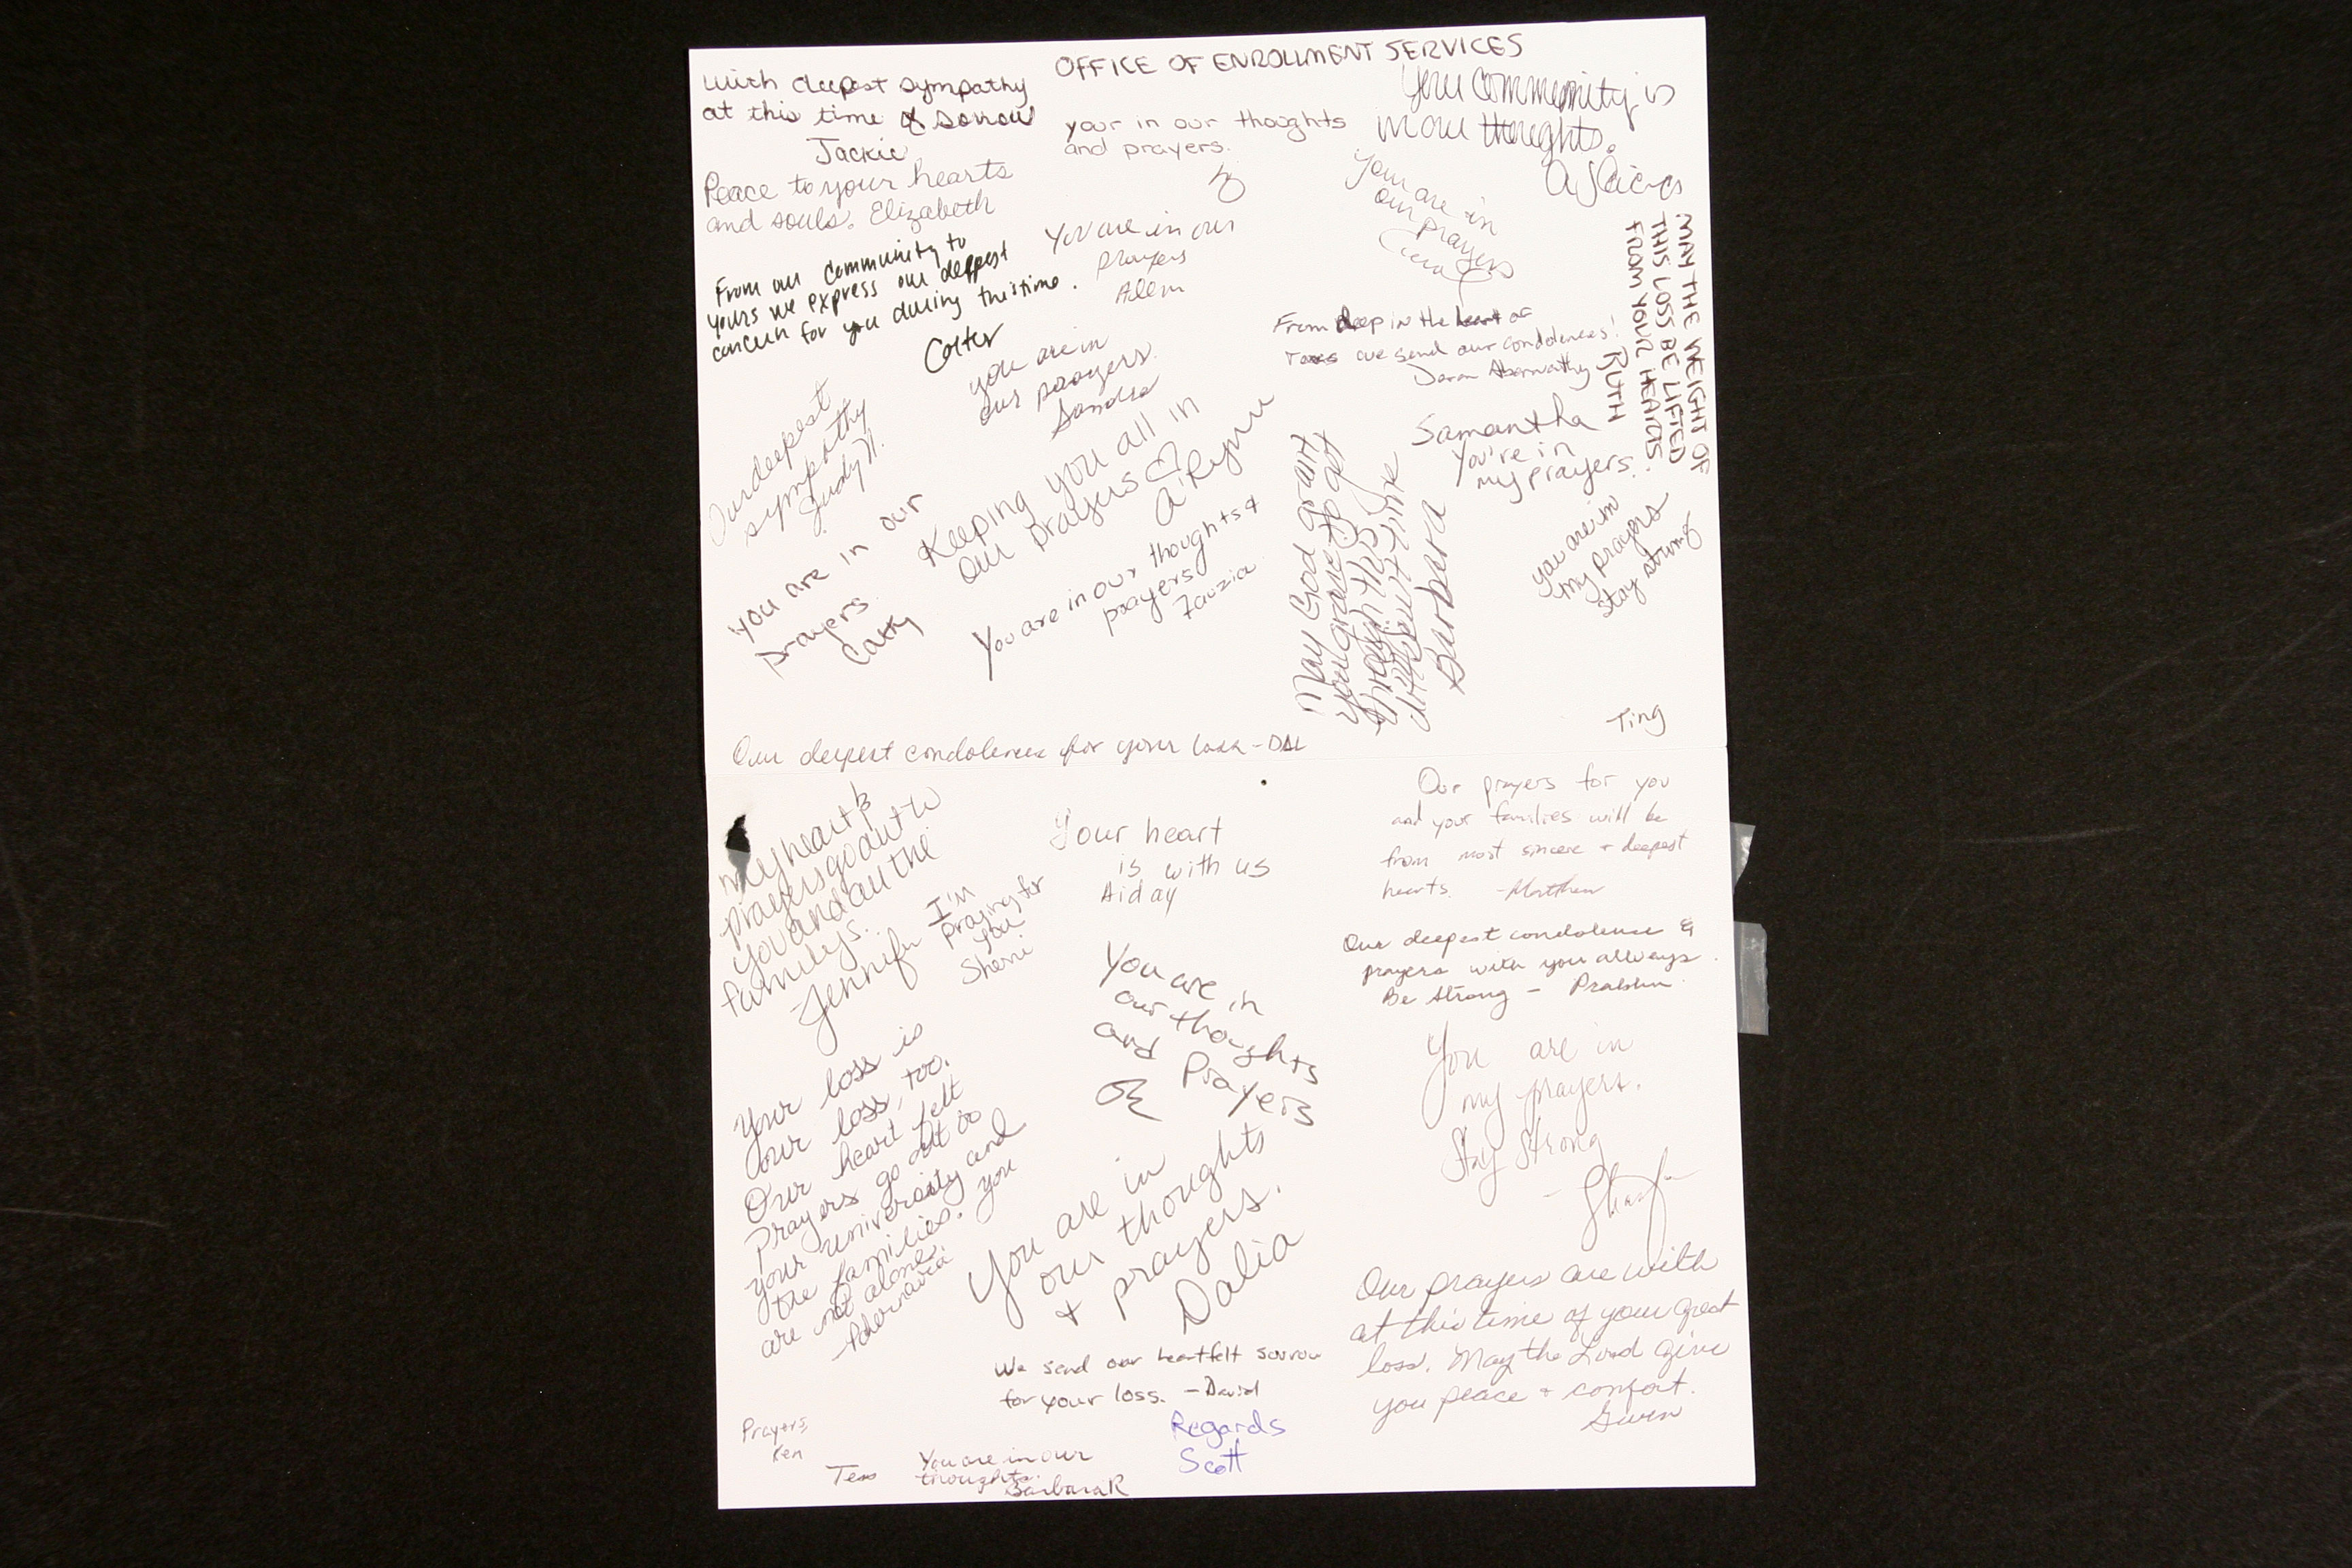 OFFICE OF ENROLLMENT SERVICES
with deepest sympathy
at this time of sorrow
Jackie
your in our thoughts
and prayers.
Your community is
in our thoughts.
Peace to your hearts
and souls. Elizabeth
You are in our
prayers
You are in
our prayers
MAY THE WEIGHT OF
THIS LOSS BE LIFTED
FROM YOUR HEARTS.
RUTH
From our community to
yours we express our deepest
concern for you during this time.
Colter
you are in
our prayers.
Sandra
From deep in the heart of
Texas we send our condolences!
Abernathy
Our deepest
sympathy
Judy H.
Keeping you all in
our prayers ♡
A'Rynn
Samantha
You're in
my prayers.
you are in our
prayers.
Cathy
You are in our thoughts &
prayers
Fauzia
May God grant
you grace to get
through this
difficult time
Barbara
you are in
my prayers
stay strong
Ting
Our deepest condolences for your loss - DAL
My heart &
prayers go out to
you and all the
familys.
Jennifer
I'm
praying for
you
Sherri
Your heart
is with us
Aiday
Our prayers for you
and your families will be
from most sincere + deepest
hearts. -Matthew
Our deepest condolence &
prayers with you allways.
Be Strong -
You are in
our thoughts
and Prayers
Your loss is
our loss, too.
Our heart felt
Prayers go out to
your university and
the families. You
are not alone.
You are in
my prayers.
Stay Strong
You are in
our thoughts
+ prayers.
Dalia
Our prayers are with
at this time of your great
loss. May the Lord give
you peace + comfort.
Gwen
We send our heartfelt sorrow
for your loss. -David
Regards
Scott
Prayers,
Ken
Tess
You are in our
thoughts.
Barbara R